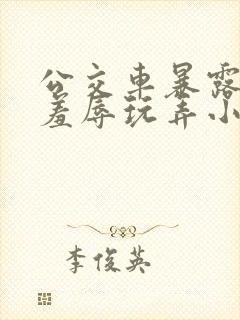 公交车暴露
羞辱玩弄小
李俊英